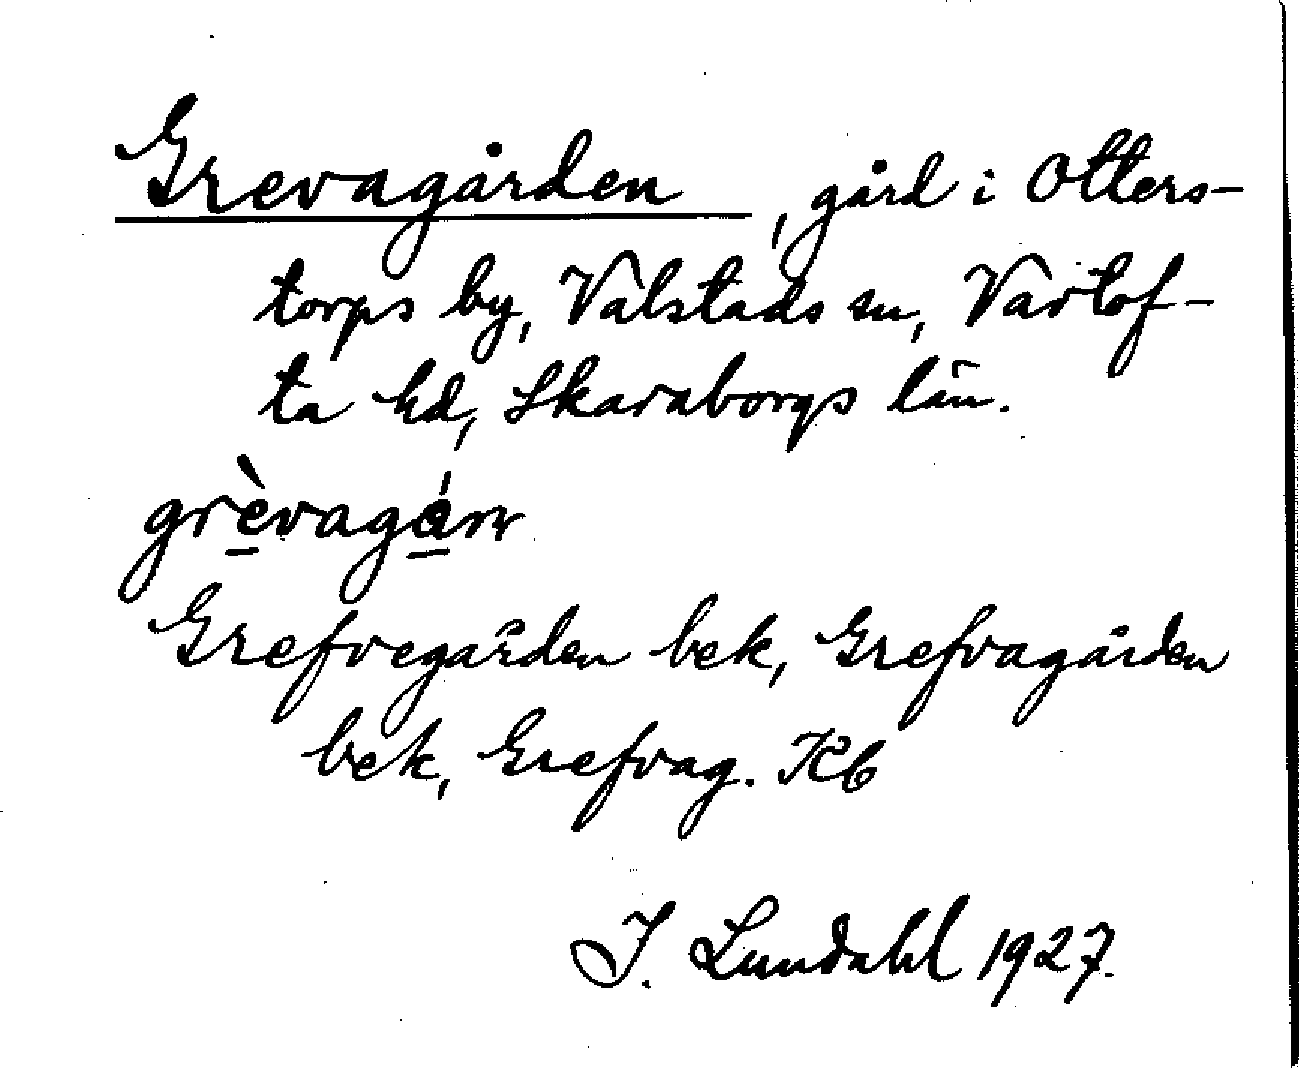 Grevagården, gård i Otters-
torps by, Valstads sn, Vartof-
ta hd, Skaraborgs län.
grèvagán
Grefvegården bek, Grefvagården
bek, Grefvag. Kb
I. Lundahl 1927.